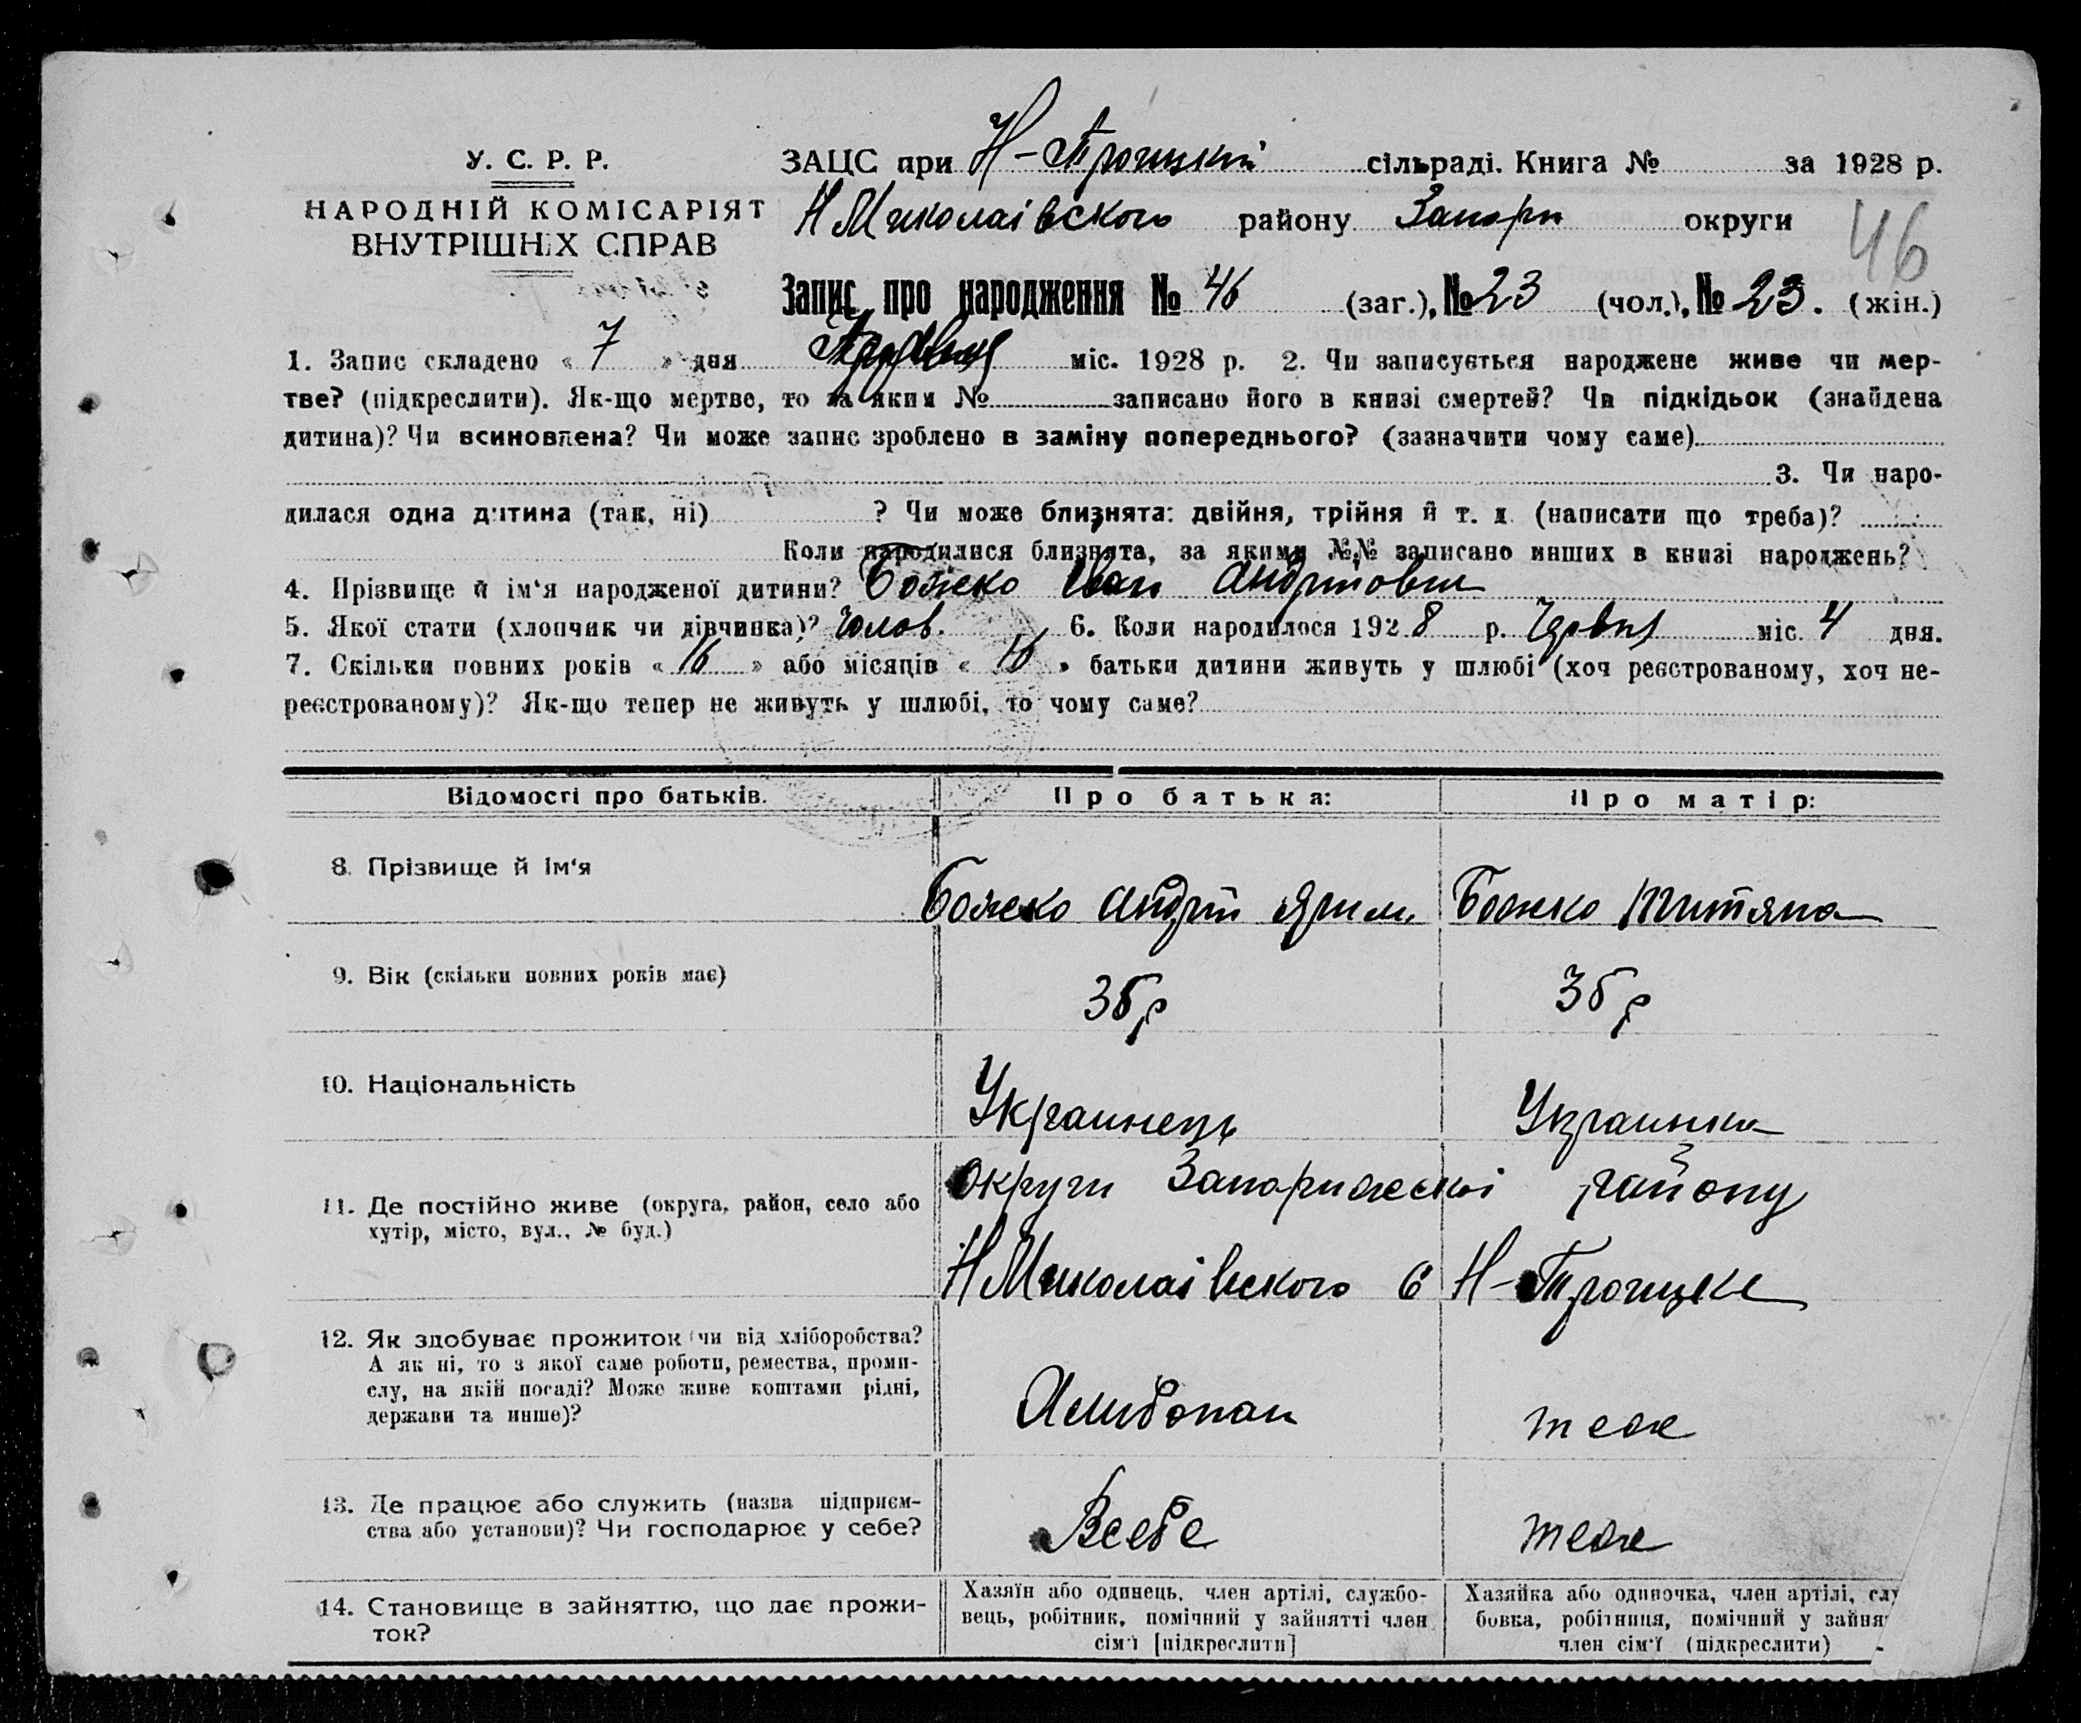 У. С. Р. Р.
НАРОДНІЙ КОМІСАРІЯТ
ВНУТРІШНІХ СПРАВ
ЗАЦС при Н-Троицкій сільраді. Книга № за 1928 р.
Н Миколаівского району Запори округи
46
Запис про народження № 46 (заг.), № 23 (чол.), № 23. (жін.)
1. Запис складено « 7 » дня міс. 1928 р. 2. Чи записується народжене живе чи мер-
тве? (підкреслити). Як-що мертве, то за яким № записано його в книзі смертей? Чи підкідьок (знайдена
дитина)? Чи всиновлена? Чи може запис зроблено в заміну попереднього? (зазначити чому саме)
3. Чи наро-
дилася одна дитина (так, ні) ? Чи може близнята: двійня, трійня й т. д. (написати що треба)?
Коли народилися близнята, за якими №№ записано инших в книзі народжень?
4. Прізвище й ім'я народженої дитини? Божко Іван Андрійович
5. Якої стати (хлопчик чи дівчинка)? Чолов. 6. Коли народилося 1928 р. міс. 4 дня.
7. Скільки повних років « 16 » або місяців « 16 » батьки дитини живуть у шлюбі (хоч реєстрованому, хоч не-
реєстрованому)? Як-що тепер не живуть у шлюбі, то чому саме?
Відомості про батьків. Про батька: Про матір:
8. Прізвище й ім'я Божко Андрій Ярим. Божко Титяна
9. Вік (скільки повних років має) 36 р 36 р
10. Національність Украинець Украинка
11. Де постійно живе (округа, район, село або
хутір, місто, вул., № буд.)
Округи Запорижскоі району
Н Миколаівского с Н-Троицке
12. Як здобуває прожиток (чи від хліборобства?
А як ні, то з якої саме роботи, ремества, проми-
слу, на якій посаді? Може живе коштами рідні,
держави та инше)?
Хлибопаш теж
13. Де працює або служить (назва підприєм-
ства або установи)? Чи господарює у себе?
Всебе теж
14. Становище в зайняттю, що дає прожи-
ток?
Хазяїн або одинець, член артілі, службо-
вець, робітник, помічний у зайнятті член
сім'ї [підкреслити]
Хазяйка або одиночка, член артілі, слу
бовка, робітниця, помічний у зайня
член сім'ї (підкреслити)